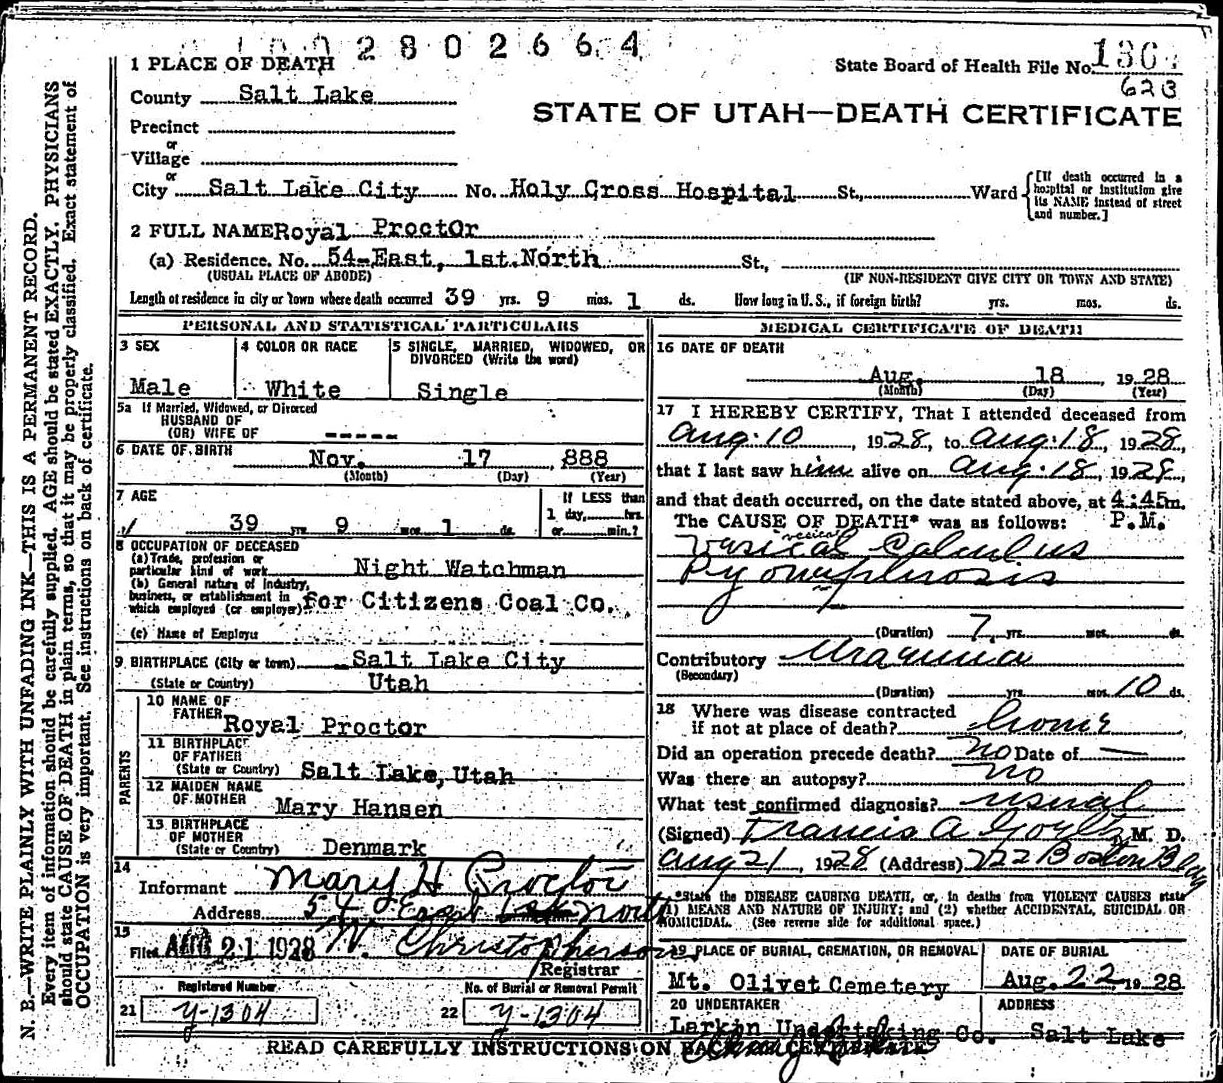 2802664
1 PLACE OF DEATH
State Board of Health File No. 1364
623
County Salt Lake
STATE OF UTAH—DEATH CERTIFICATE
Precinct
or
Village
or
City Salt Lake City No. Holy Cross Hospital St., Ward
[If death occurred in a hospital or institution give its NAME instead of street and number.]
2 FULL NAME Royal Proctor
(a) Residence. No. 54-East, 1st.North St.,
(USUAL PLACE OF ABODE) (IF NON-RESIDENT GIVE CITY OR TOWN AND STATE)
Length of residence in city or town where death occurred 39 yrs. 9 mos. 1 ds. How long in U. S., if foreign birth? yrs. mos. ds.
PERSONAL AND STATISTICAL PARTICULARS
3 SEX
Male
4 COLOR OR RACE
White
5 SINGLE, MARRIED, WIDOWED, OR
DIVORCED (Write the word)
Single
5a If Married, Widowed, or Divorced
HUSBAND OF
(OR) WIFE OF -----
6 DATE OF BIRTH
Nov. 17, 888
(Month) (Day) (Year)
7 AGE
39 yrs. 9 mos. 1 ds.
If LESS than
1 day, hrs.
or min.?
8 OCCUPATION OF DECEASED
(a) Trade, profession or
particular kind of work Night Watchman
(b) General nature of Industry,
business, or establishment in
which employed (or employer) for Citizens Coal Co.
(c) Name of Employe
9 BIRTHPLACE (City or town) Salt Lake City
(State or Country) Utah
PARENTS
10 NAME OF
FATHER Royal Proctor
11 BIRTHPLACE
OF FATHER
(State or Country) Salt Lake, Utah
12 MAIDEN NAME
OF MOTHER Mary Hansen
13 BIRTHPLACE
OF MOTHER
(State or Country) Denmark
14
Informant Mary H Proctor
Address 54 East North
15
Filed AUG 21 1928 W. Christopherson
Registrar
Registered Number
21 y-1304
No. of Burial or Removal Permit
22 y-1304
MEDICAL CERTIFICATE OF DEATH
16 DATE OF DEATH
Aug. 18, 1928
(Month) (Day) (Year)
17 I HEREBY CERTIFY, That I attended deceased from
Aug. 10, 1928, to Aug. 18, 1928,
that I last saw him alive on Aug. 18, 1928,
and that death occurred, on the date stated above, at 4:45m.
The CAUSE OF DEATH* was as follows: P.M.
vesical
Vesical Calculus
Pyonephrosis
(Duration) 7 yrs. mos. ds.
Contributory Uraemia
(Secondary)
(Duration) yrs. mos. 10 ds.
18 Where was disease contracted
if not at place of death? home
Did an operation precede death? no Date of —
Was there an autopsy? no
What test confirmed diagnosis? usual
(Signed) Francis A M. D.
Aug 21, 1928 (Address) 722 Boston Bldg
*State the DISEASE CAUSING DEATH, or, in deaths from VIOLENT CAUSES state
(1) MEANS AND NATURE OF INJURY; and (2) whether ACCIDENTAL, SUICIDAL OR
HOMICIDAL. (See reverse side for additional space.)
19 PLACE OF BURIAL, CREMATION, OR REMOVAL
Mt. Olivet Cemetery
DATE OF BURIAL
Aug. 22 1928
20 UNDERTAKER
Larkin Undertaking Co.
ADDRESS
Salt Lake
READ CAREFULLY INSTRUCTIONS ON BACK OF CERTIFICATE
N. B.—WRITE PLAINLY WITH UNFADING INK—THIS IS A PERMANENT RECORD.
Every item of information should be carefully supplied. AGE should be stated EXACTLY. PHYSICIANS
should state CAUSE OF DEATH in plain terms, so that it may be properly classified. Exact statement of
OCCUPATION is very important. See instructions on back of certificate.